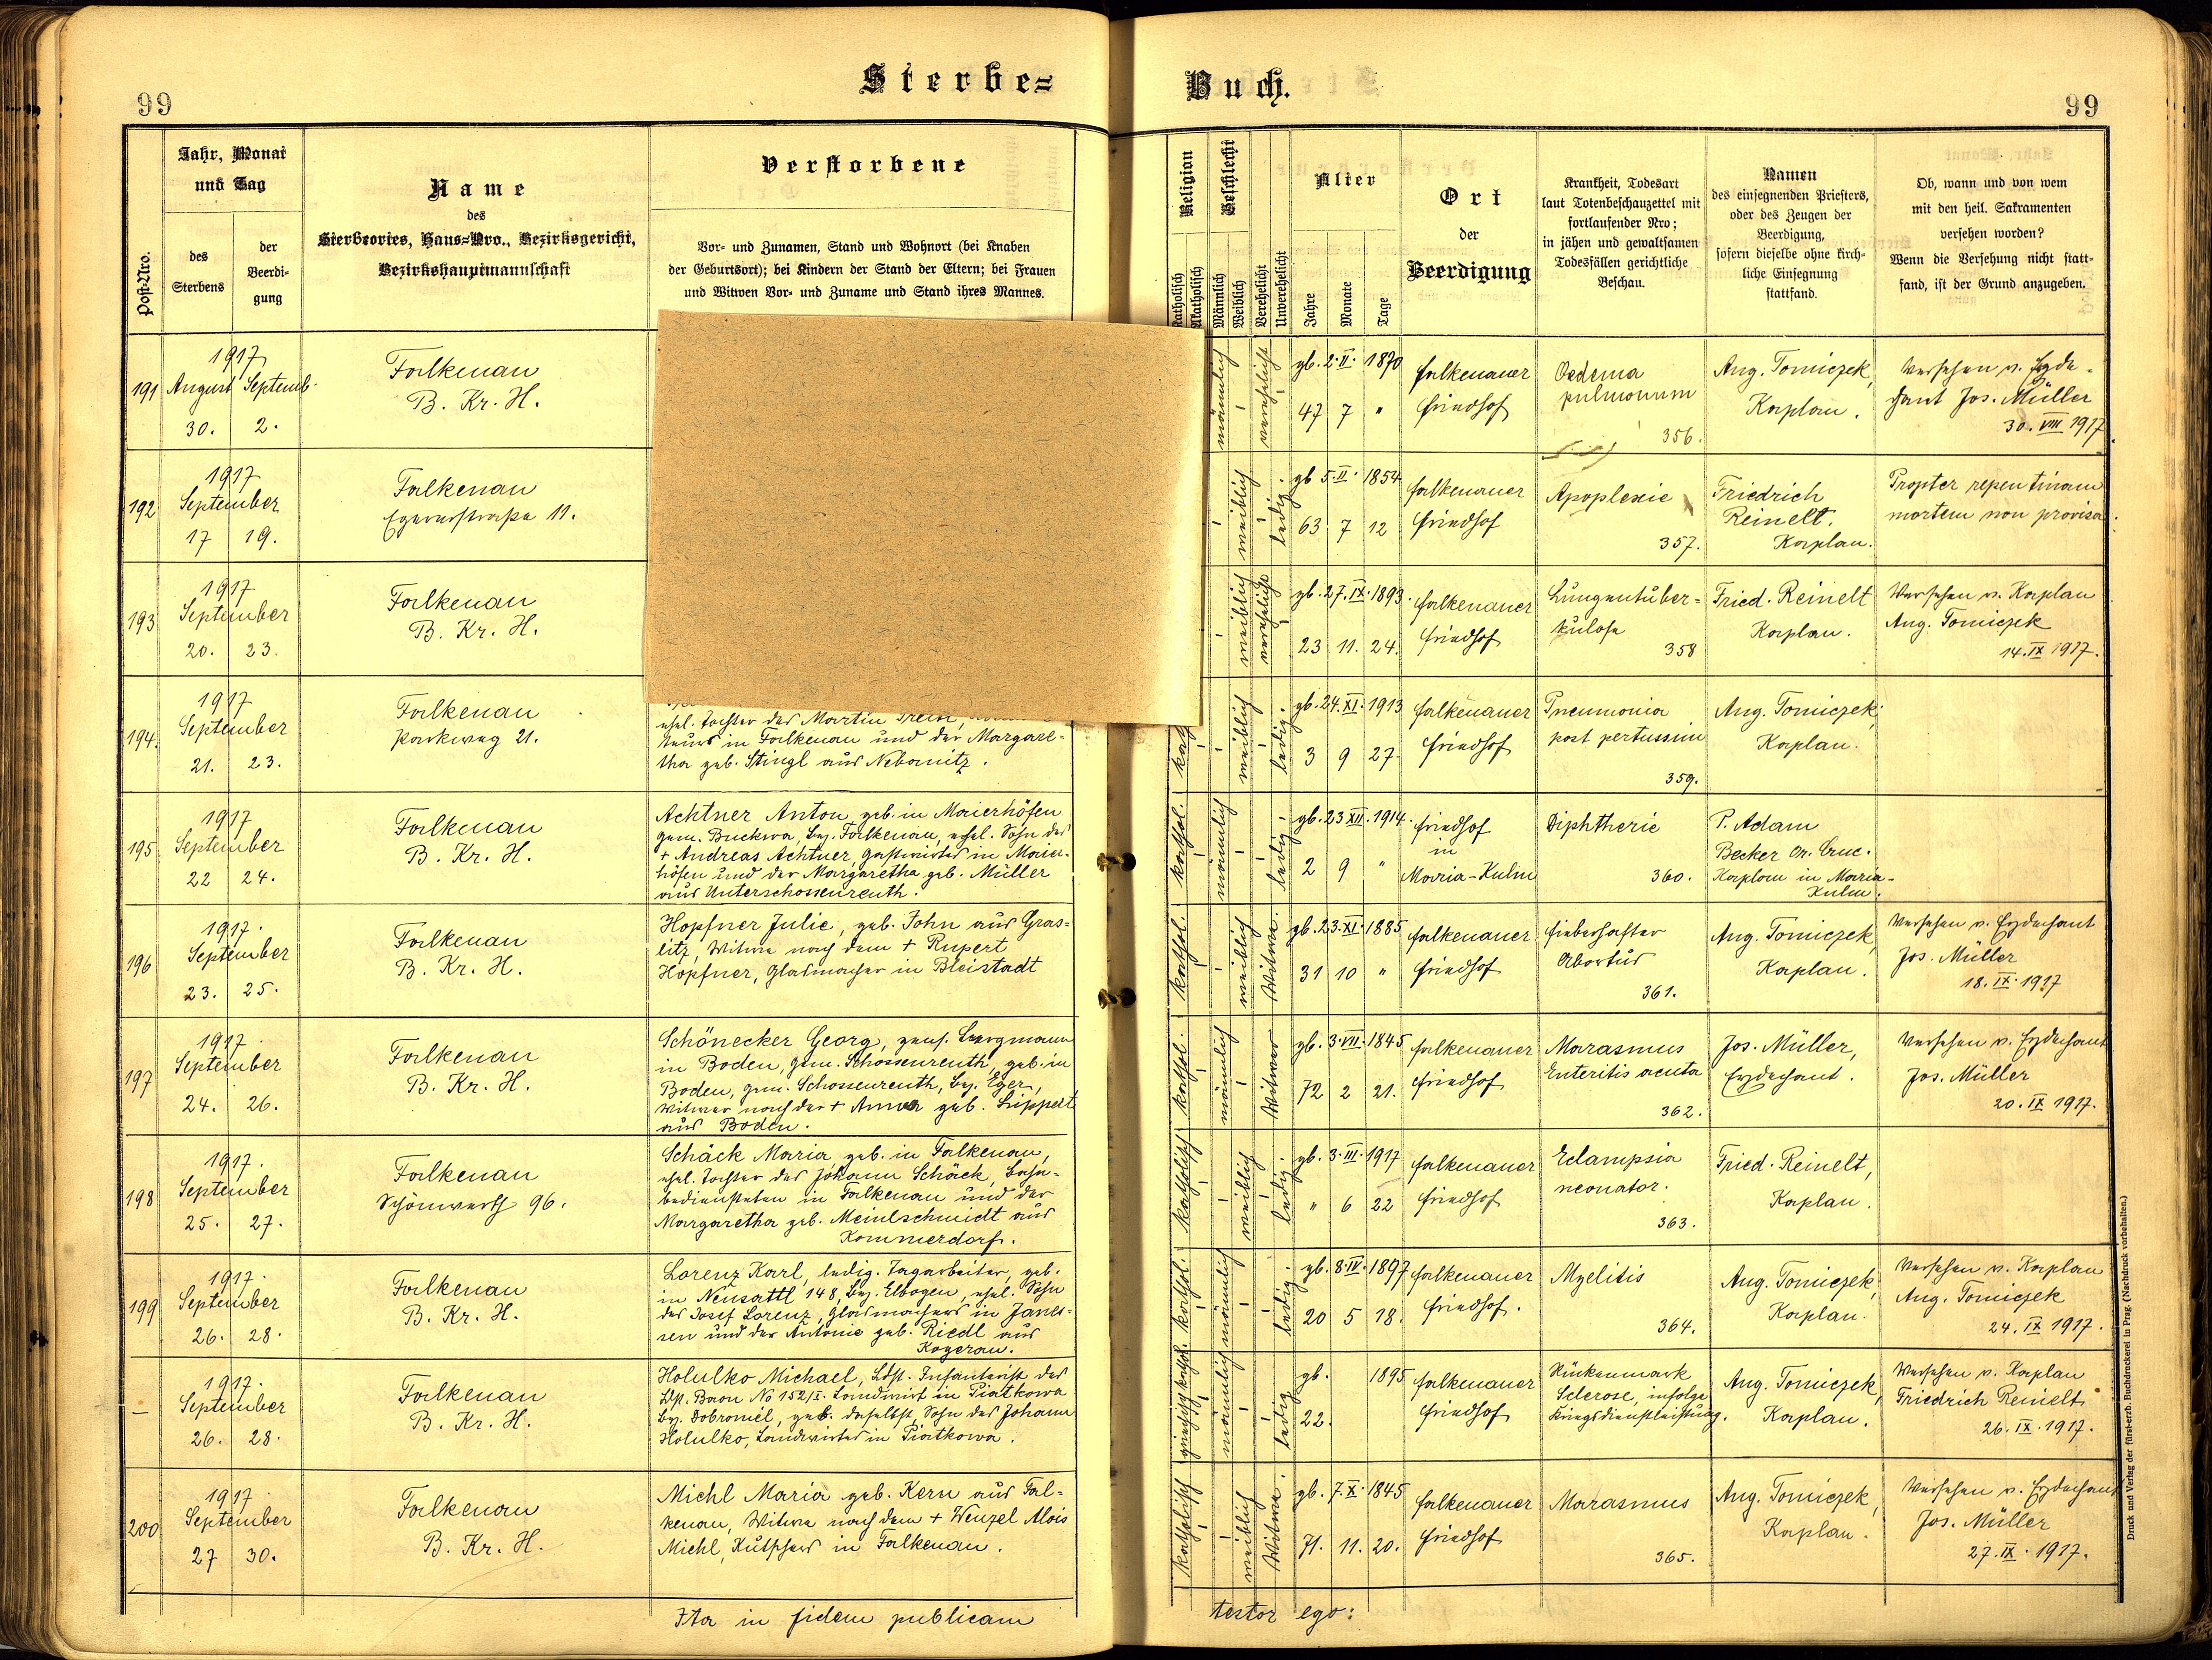 Sterbe=
Buch.
99
99
Post-Nro.
Jahr, Monat
und Tag
des
Sterbens
der
Beerdi-
gung
Name
des
Sterbeortes, Haus=Nro., Bezirksgericht,
Bezirkshauptmannschaft
Verstorbene
Vor- und Zunamen, Stand und Wohnort (bei Knaben
der Geburtsort); bei Kindern der Stand der Eltern; bei Frauen
und Witwen Vor- und Zuname und Stand ihres Mannes.
Religion
Katholisch
Akatholisch
Geschlecht
Männlich
Weiblich
Verehelicht
Unverehelicht
Alter
Jahre
Monate
Tage
Ort
der
Beerdigung
Krankheit, Todesart
laut Totenbeschauzettel mit
fortlaufender Nro;
in jähen und gewaltsamen
Todesfällen gerichtliche
Beschau.
Namen
des einsegnenden Priesters,
oder des Zeugen der
Beerdigung,
sofern dieselbe ohne kirch-
liche Einsegnung
stattfand.
Ob, wann und von wem
mit den heil. Sakramenten
versehen worden?
Wenn die Versehung nicht statt-
fand, ist der Grund anzugeben.
191
1917
August Septemb.
30. 2.
Falkenau
B. Kr. H.
männlich
verehelicht
gb. 2. II. 1870
47 7 "
Falkenauer
Friedhof
Oedema
pulmonum
356.
Ang. Tomiczek,
Kaplan.
Versehen v. Erzde-
chant Jos. Müller
30. VIII 1917.
192
1917
September
17 19.
Falkenau
Egererstraße 11.
weiblich
ledig.
gb 5. II. 1854
63 7 12
Falkenauer
Friedhof
Apoplexie
357.
Friedrich
Reinelt.
Kaplan.
Propter repentinam
mortem non provisa.
193
1917
September
20. 23.
Falkenau
B. Kr. H.
weiblich
verehelicht
gb. 27. IX. 1893.
23 11. 24.
Falkenauer
Friedhof
Lungentuber=
kulose
358
Fried. Reinelt
Kaplan.
Versehen v. Kaplan
Aug. Tomiczek
14. IX 1917.
194.
1917
September
21. 23.
Falkenau
Parkweg 21.
ehel. Tochter des Martin
in Falkenau und der Margare-
tha geb. Stingl aus Nebanitz.
kath
weiblich
ledig.
gb. 24. XI. 1913
3 9 27.
Falkenauer
Friedhof
Pneumonia
post pertussim
359.
Aug. Tomiczek,
Kaplan.
195
1917
September
22 24.
Falkenau
B. Kr. H.
Achtner Anton, geb. in Maierhöfen
gem. Buckwa, Bez. Falkenau, ehel. Sohn des
+ Andreas Achtner, Gastwirtes in Maier-
höfen und der Margaretha geb. Müller
aus Unterschossenreuth.
kathol.
männlich
ledig.
gb. 23 XII. 1914.
2 9 "
Friedhof
in
Maria-Kulm
Diphtherie
360.
P. Adam
Becker Or. Cruc.
Kaplan in Maria-
Kulm.
196
1917.
September
23. 25.
Falkenau
B. Kr. H.
Hopfner Julie, geb. John aus Gras=
litz, Witwe nach dem + Rupert
Hopfner, Glasmacher in Bleistadt
kathol.
weiblich
Witwe.
gb. 23. XI. 1885
31 10 "
Falkenauer
Friedhof
Fieberhafter
Abortus
361.
Aug. Tomiczek,
Kaplan.
Versehen v. Erzdechant
Jos. Müller
18. IX. 1917
197
1917.
September
24. 26.
Falkenau
B. Kr. H.
Schönecker Georg, pens. Bergmann
in Boden, gem. Schossenreuth, geb. in
Boden, gem. Schossenreuth, Bez. Eger,
Witwer nach der + Anna geb. Lippert
aus Boden.
kathol.
männlich
Witwer
gb. 3. VII. 1845
72 2 21.
Falkenauer
Friedhof
Marasmus
Enteritis acuta
362.
Jos. Müller,
Erzdechant.
Versehen v. Erzdechant
Jos. Müller
20. IX 1917.
198
1917.
September
25. 27.
Falkenau
Schönwerth 96.
Schäck Maria geb. in Falkenau,
ehel. Tochter des Johann Schäck, Bahn-
bediensteten in Falkenau und der
Margaretha geb. Meinlschmidt aus
Kommerdorf.
katholisch
weiblich
ledig.
gb. 3. III. 1917
" 6 22
Falkenauer
Friedhof
Eclampsia
neonator.
363.
Fried. Reinelt,
Kaplan.
199
1917.
September
26. 28.
Falkenau
B. Kr. H.
Lorenz Karl, ledig. Tagarbeiter, geb.
in Neusattl 148, Bez. Elbogen, ehel. Sohn
des Josef Lorenz, Glasmachers in Janes-
sen und der Antonie geb. Riedl aus
Kogerau.
kathol.
männlich
ledig.
gb. 8. IV. 1897
20 5 18.
Falkenauer
Friedhof.
Myelitis
364.
Aug. Tomiczek,
Kaplan.
Versehen v. Kaplan
Aug. Tomiczek
24. IX 1917.
—
1917.
September
26. 28.
Falkenau
B. Kr. H.
Holulko Michael, Ldst. Infanterist des
Ldst. Baon. No 152/I. Landwirt in Piatkowa
Bez. Dobromiel, geb. daselbst, Sohn des Johann
Holulko, Landwirtes in Piatkowa.
griech. kathol.
männlich
ledig
gb. 1895
22.
Falkenauer
Friedhof
Rückenmark
Sclerose, infolge
Kriegsdienstleistung.
Aug. Tomiczek,
Kaplan.
Versehen v. Kaplan
Friedrich Reinelt
26. IX. 1917.
200
1917.
September
27 30.
Falkenau
B. Kr. H.
Michl Maria geb. Kern aus Fal-
kenau, Witwe nach dem + Wenzel Alois
Michl, Kutschers in Falkenau.
katholisch
weiblich
Witwe.
gb. 7. X. 1845
71. 11. 20.
Falkenauer
Friedhof
Marasmus
365.
Aug. Tomiczek,
Kaplan.
Versehen v. Erzdechant
Jos. Müller
27. IX. 1917.
Ita in fidem publicam
testor ego:
Druck und Verlag der fürst-erzb. Buchdruckerei in Prag. (Nachdruck vorbehalten.)